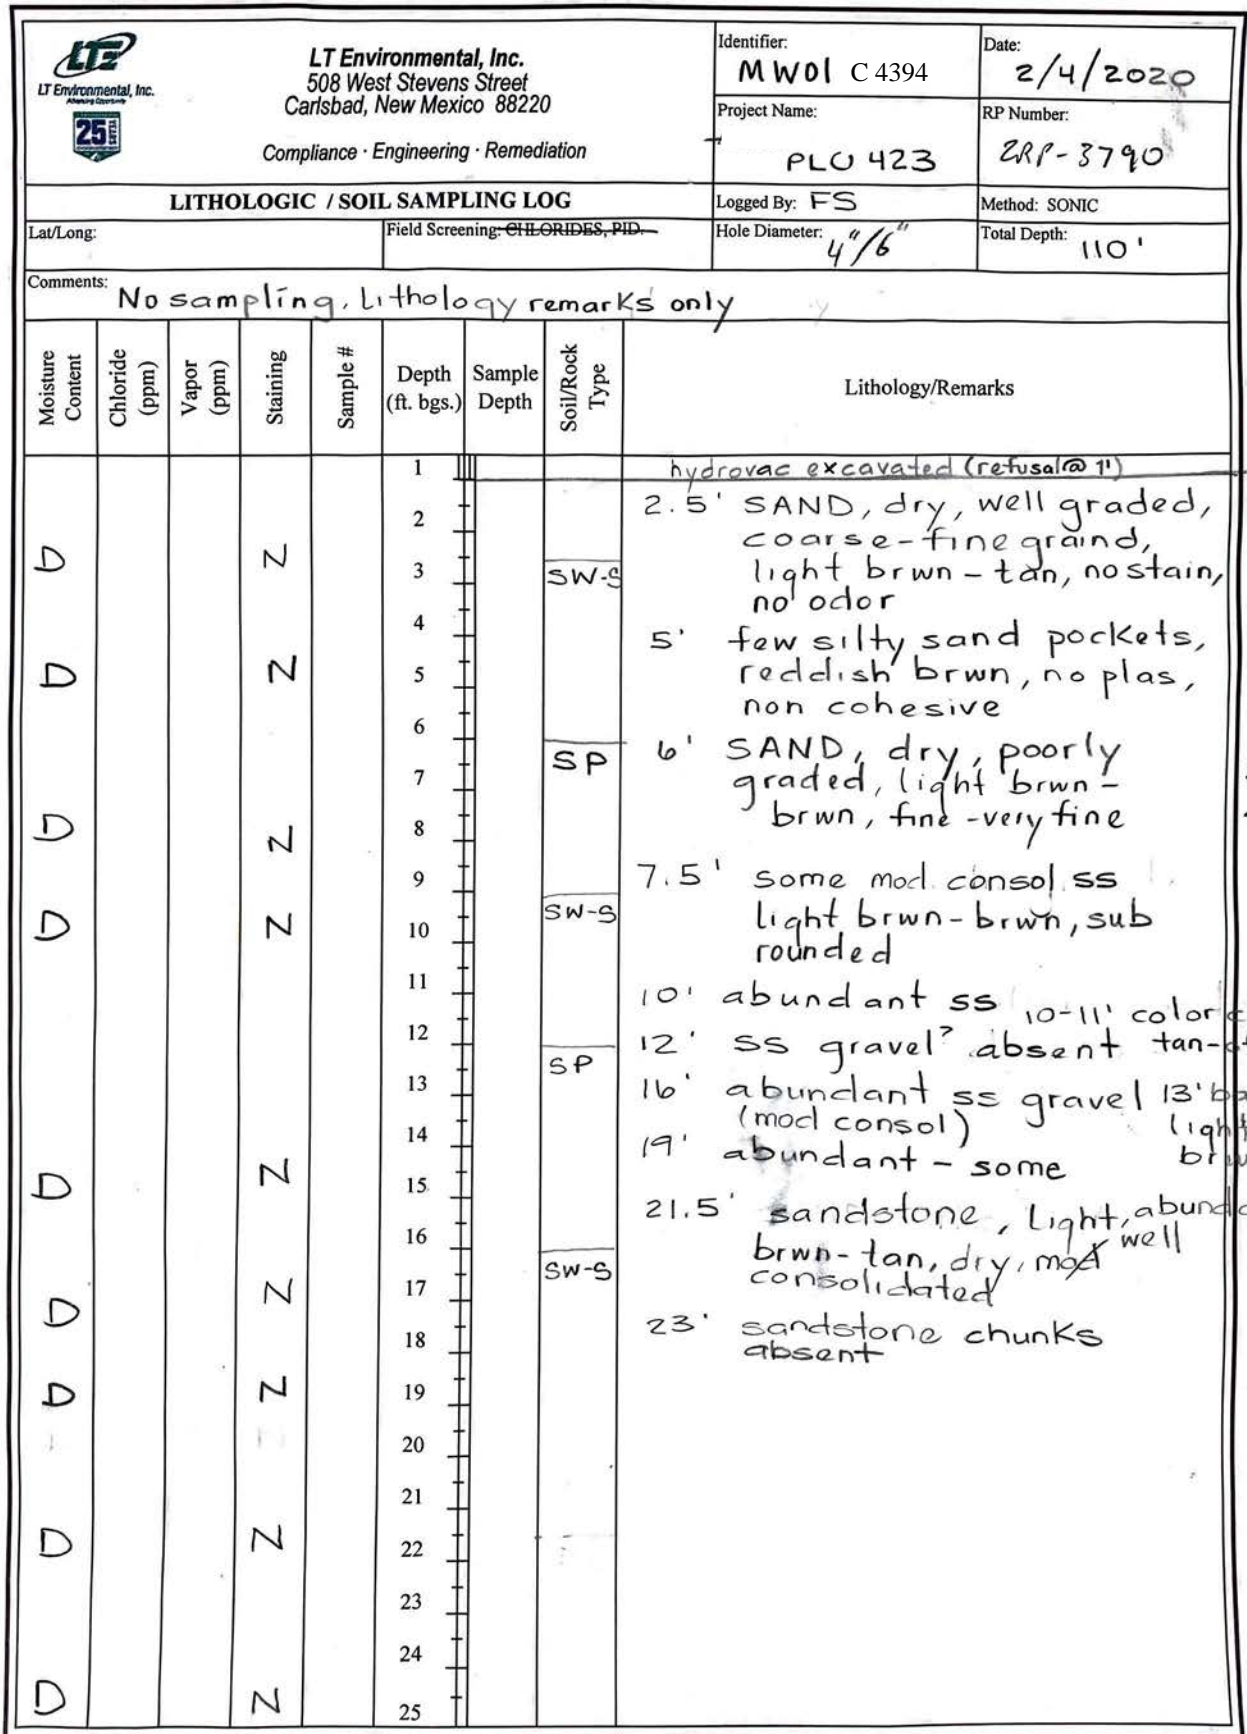 LTE
LT Environmental, Inc.
Advancing Opportunity
25 YEARS
LT Environmental, Inc.
508 West Stevens Street
Carlsbad, New Mexico 88220
Compliance · Engineering · Remediation
Identifier:
MW01 C 4394
Date:
2/4/2020
Project Name:
PLU 423
RP Number:
2RP-3790
LITHOLOGIC / SOIL SAMPLING LOG
Logged By: FS
Method: SONIC
Lat/Long:
Field Screening: CHLORIDES, PID.
Hole Diameter: 4"/6"
Total Depth: 110'
Comments: No sampling, Lithology remarks only
Moisture Content
Chloride (ppm)
Vapor (ppm)
Staining
Sample #
Depth (ft. bgs.)
Sample Depth
Soil/Rock Type
Lithology/Remarks
1 hydrovac excavated (refusal@ 1')
2 2.5' SAND, dry, well graded,
coarse-fine graind,
D N 3 SW-S light brwn - tan, no stain,
no odor
4 5' few silty sand pockets,
D N 5 reddish brwn, no plas,
non cohesive
6 6' SAND, dry, poorly
7 SP graded, light brwn -
D N 8 brwn, fine -very fine
9 7.5' some mod. consol ss
D N 10 SW-S light brwn-brwn, sub
rounded
11 10' abundant ss 10-11' color
12 12' ss gravel? absent
13 SP 16' abundant ss gravel 13'
14 (mod consol)
19' abundant - some
D N 15
21.5' sandstone, Light,
16 brwn- tan, dry, mod well
D N 17 SW-S consolidated
18 23' sandstone chunks
absent
D N 19
20
21
D N 22
23
24
D N 25